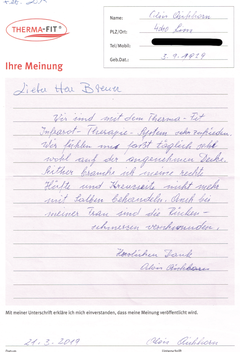 THERMA-FIT®
Name:
PLZ/Ort:
Tel/Mobil:
Geb.Dat.: 3.9.1939
Ihre Meinung
Lieber Herr
Wir sind mit dem Therma-Fit
Infrarot-Therapie-System sehr zufrieden.
Wir fühlen uns fast täglich sehr
wohl auf der angenehmen Decke.
Seither brauche ich meine rechte
Hüfte und Kreuzseite nicht mehr
mit Salben behandeln. Auch bei
meiner Frau sind die Rücken-
schmerzen verschwunden.
Herzlichen Dank
Alois
Mit meiner Unterschrift erkläre ich mich einverstanden, dass meine Meinung veröffentlicht wird.
21.3.2019 Alois
Datum Unterschrift